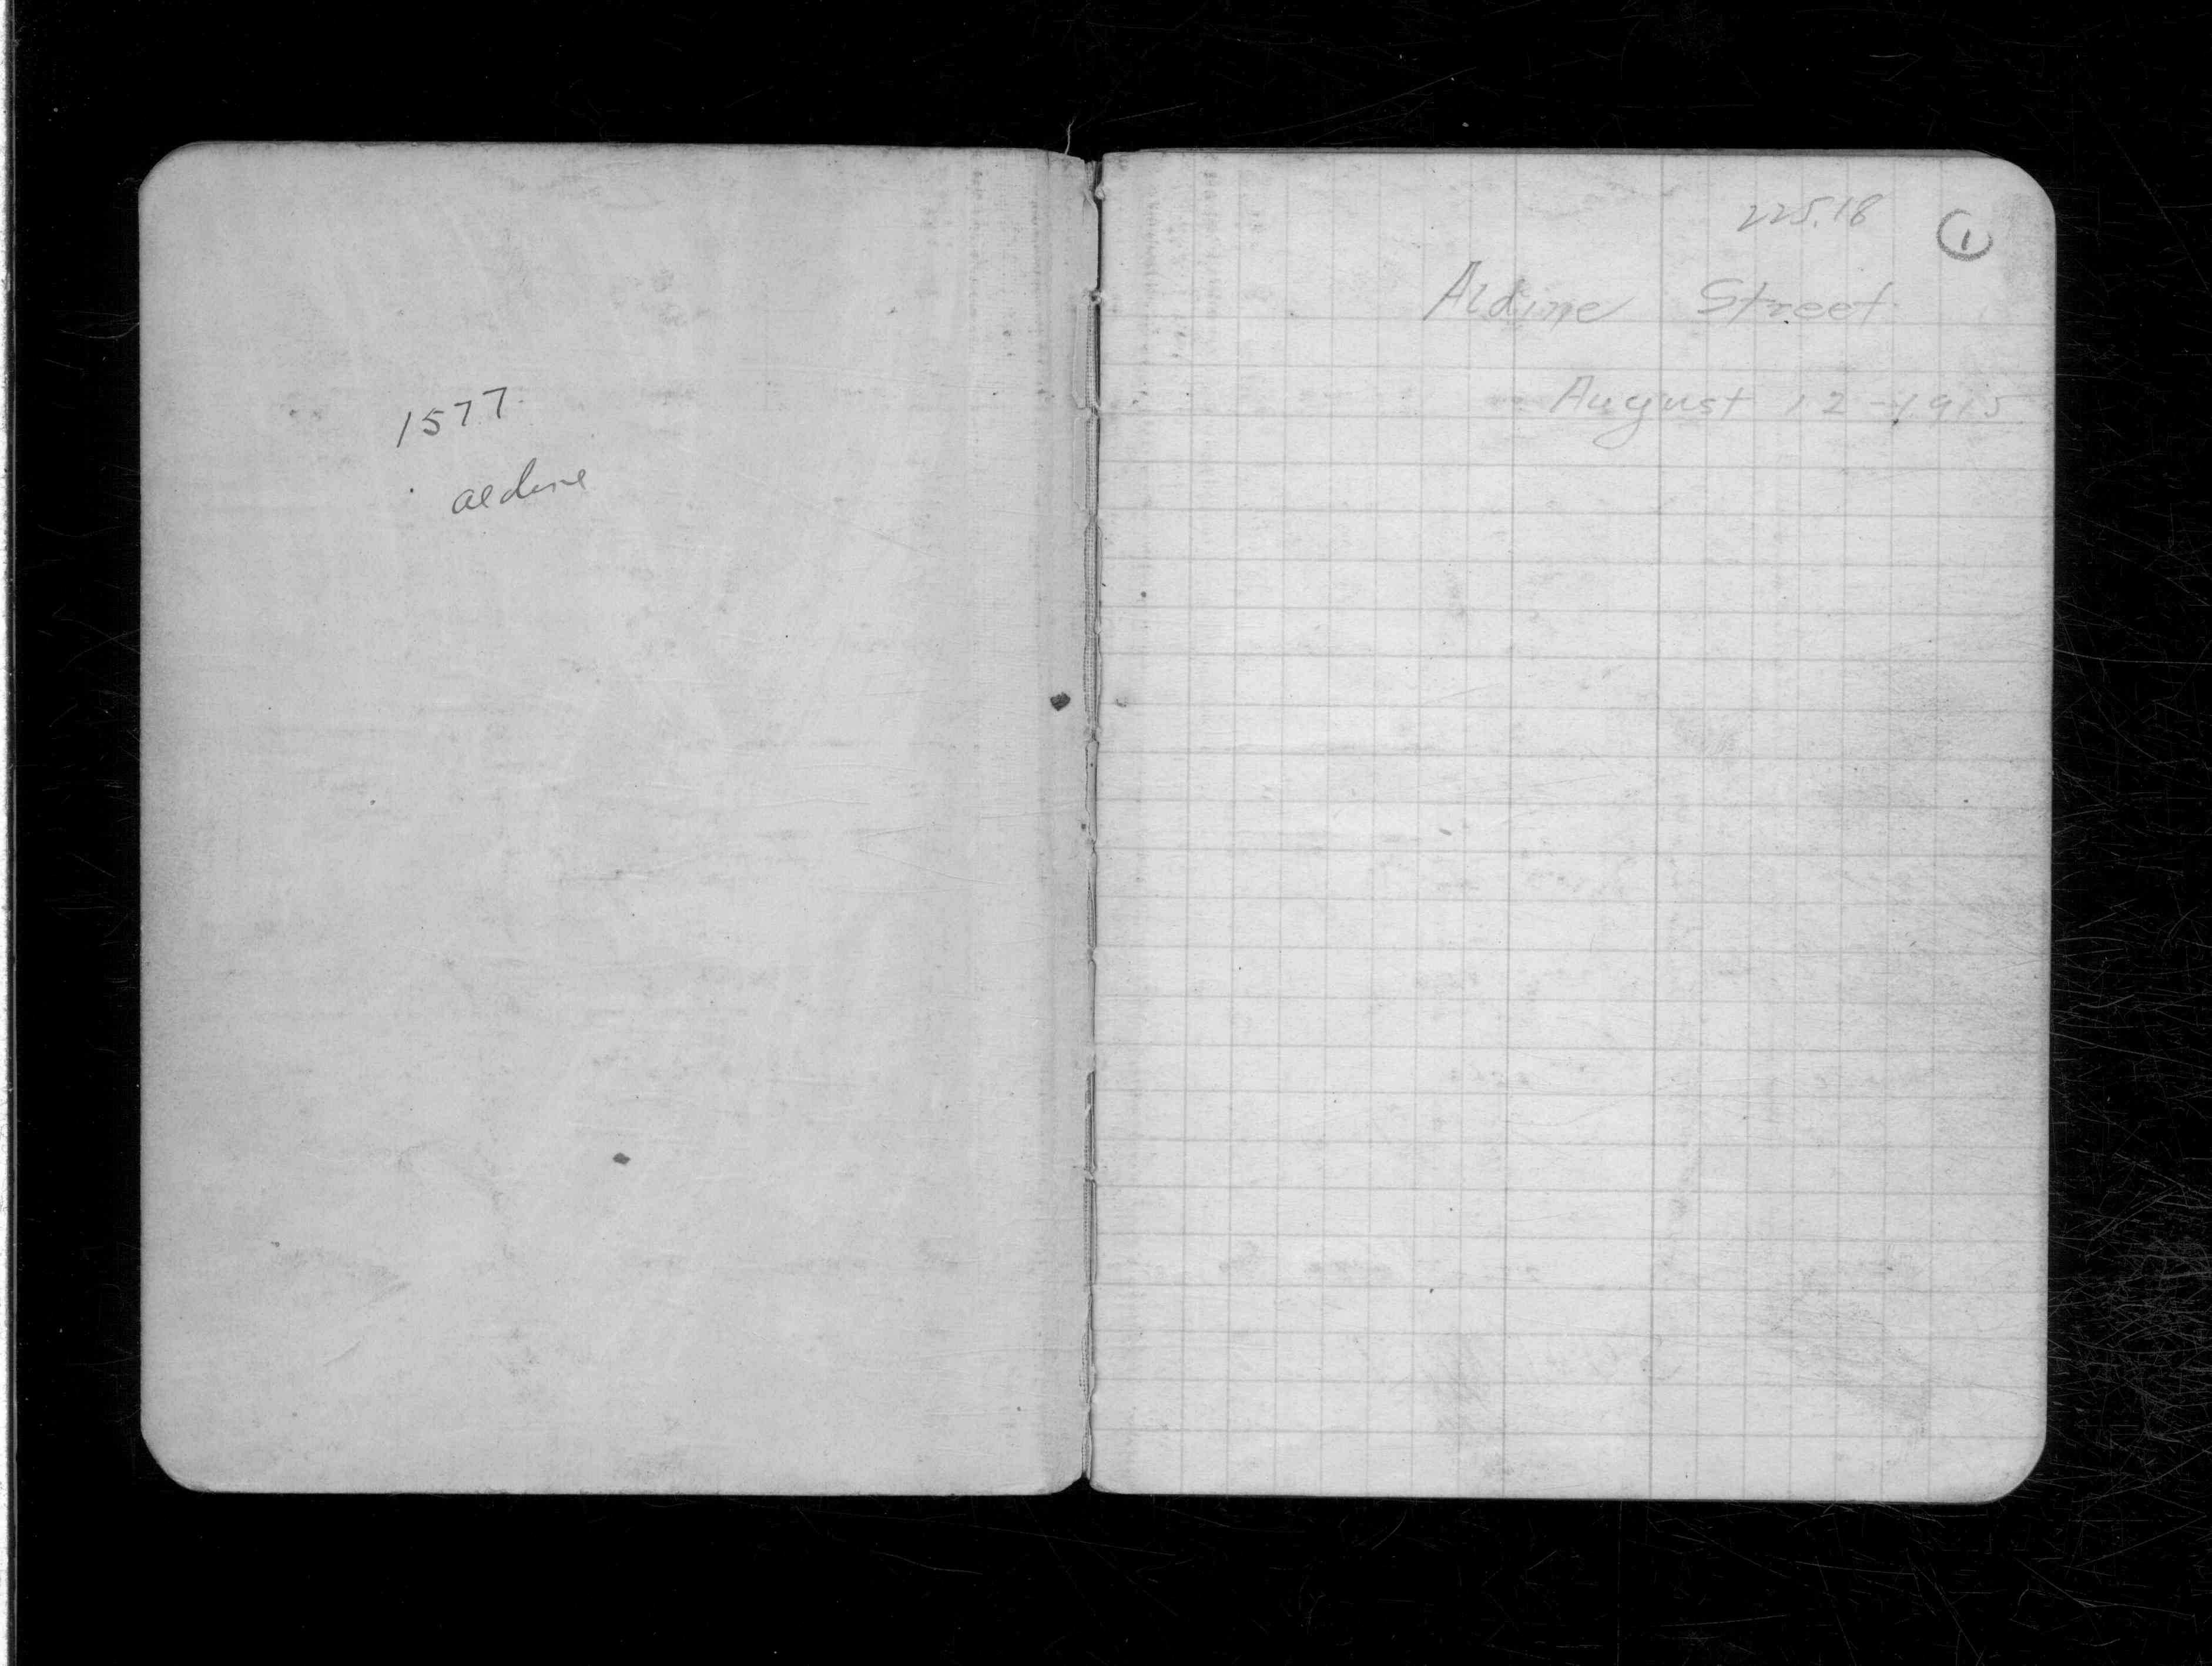 1577
aldine
225.18
1
Aldine Street
August 12-1915